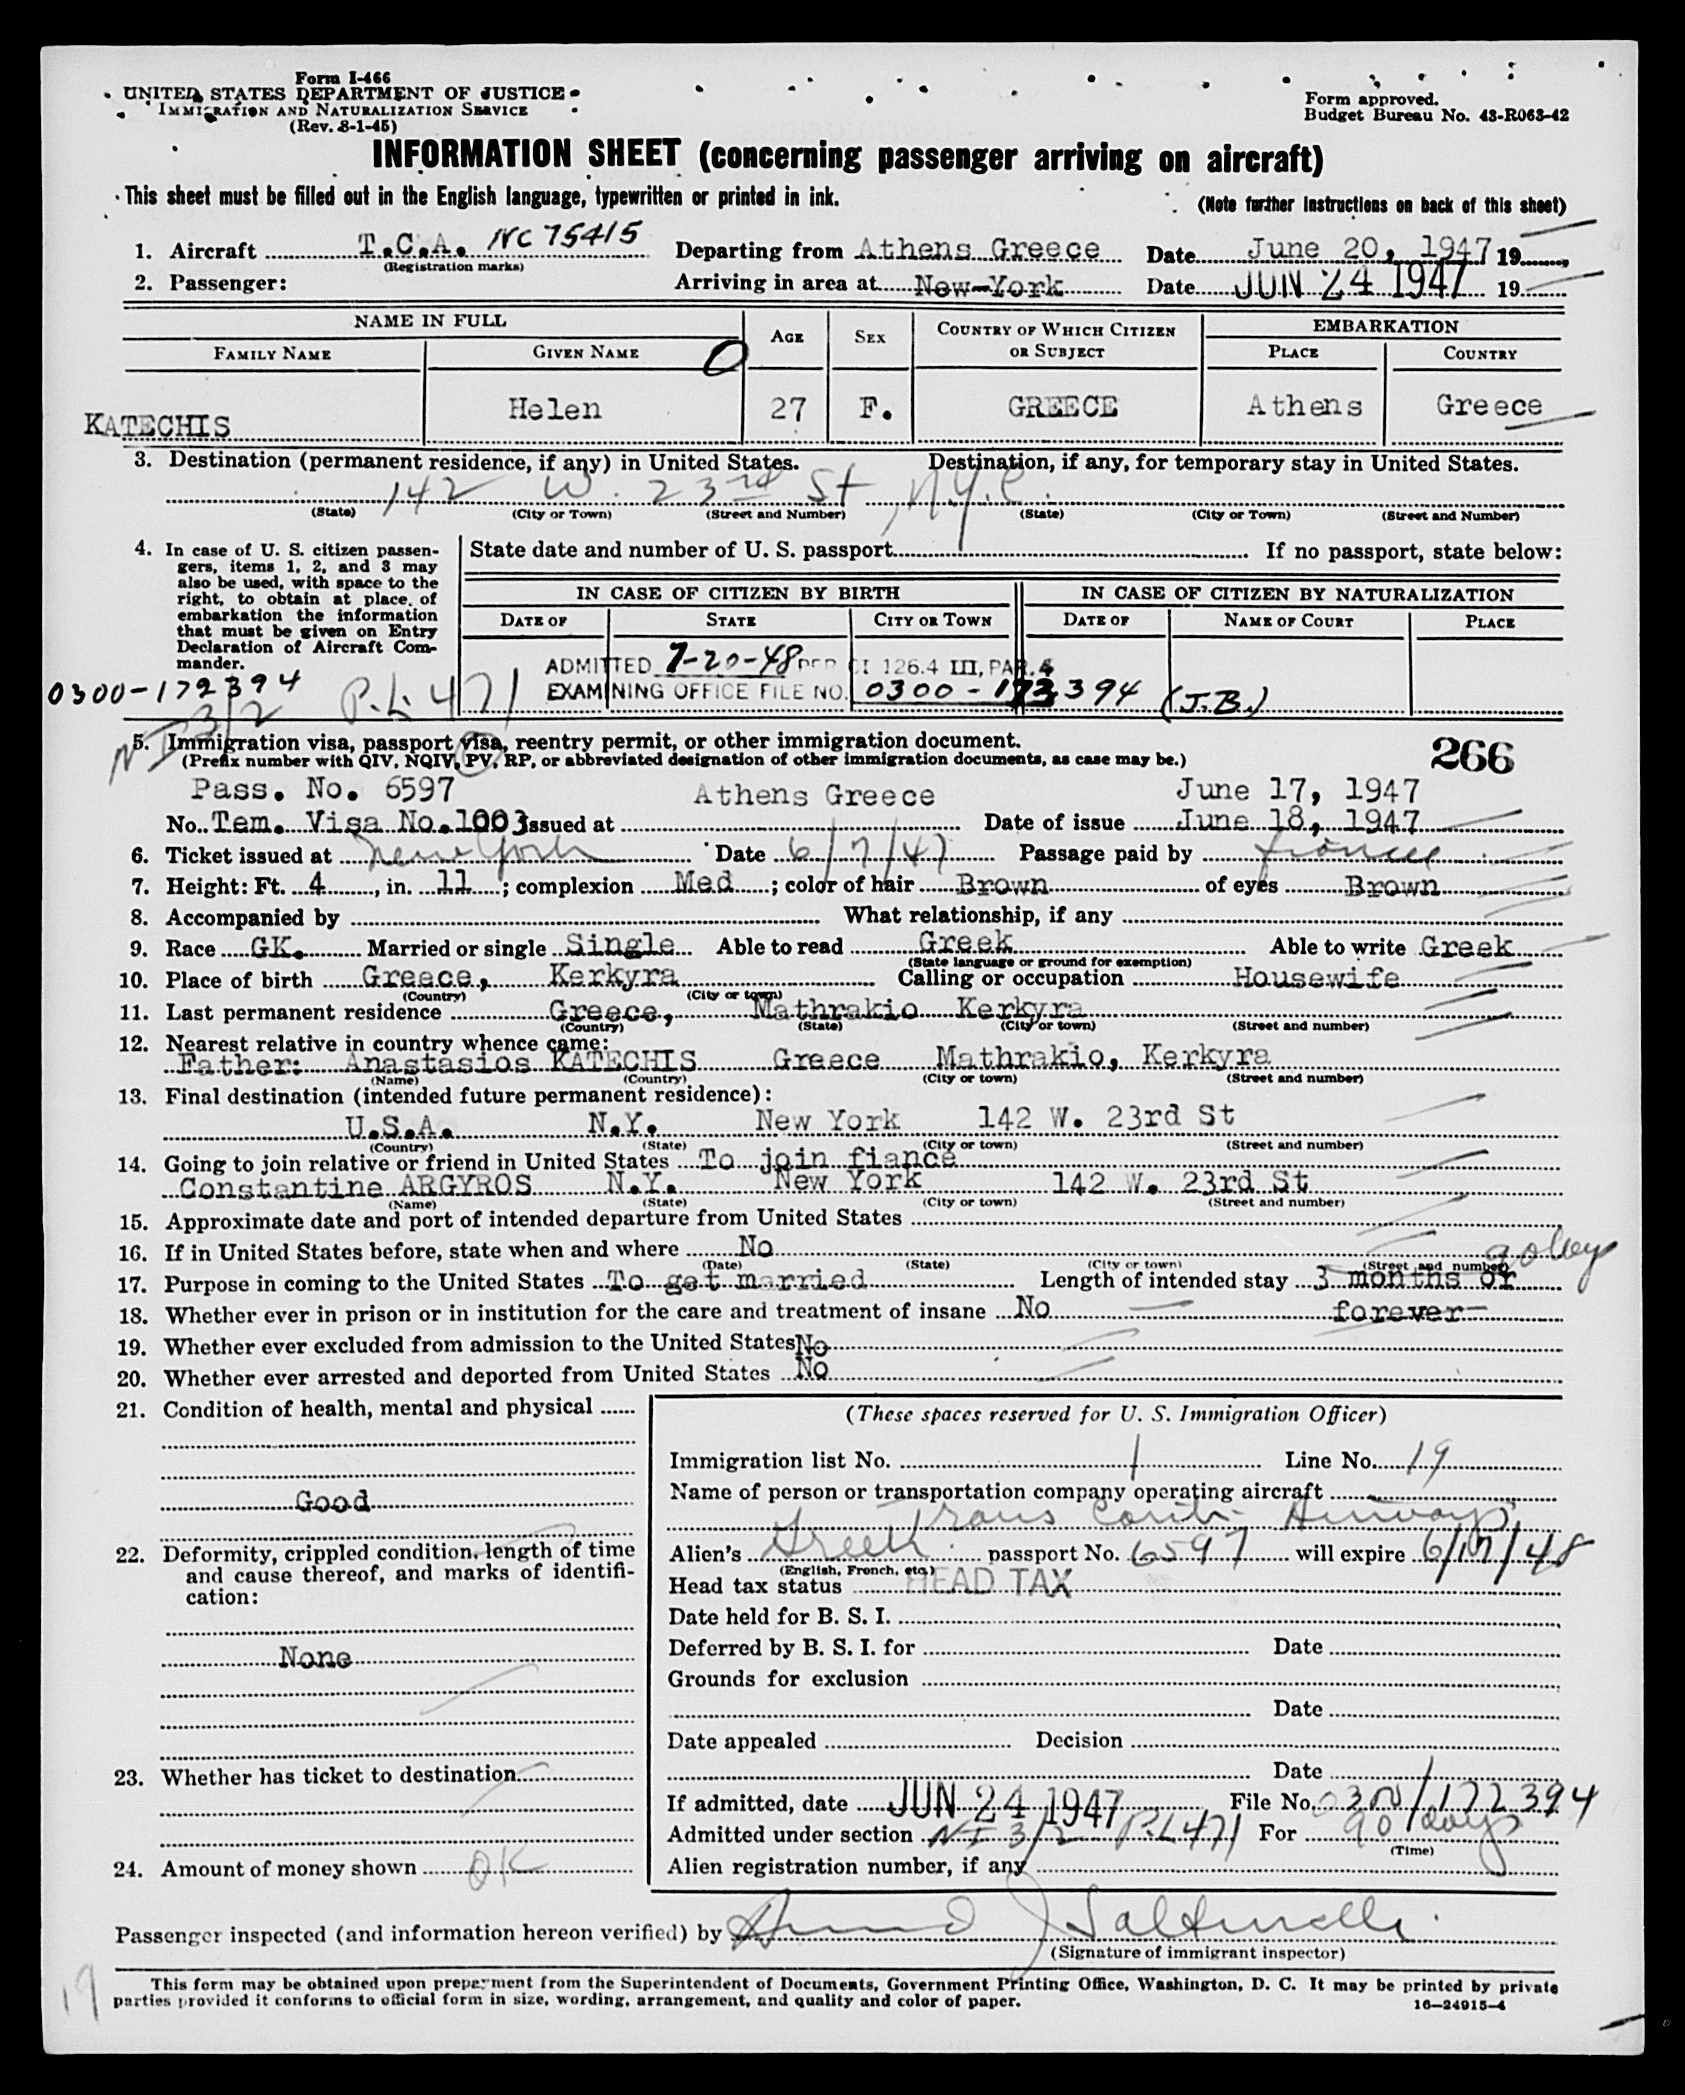 Form I-466
UNITED STATES DEPARTMENT OF JUSTICE
IMMIGRATION AND NATURALIZATION SERVICE
(Rev. 8-1-45)
Form approved.
Budget Bureau No. 43-R063-42
INFORMATION SHEET (concerning passenger arriving on aircraft)
This sheet must be filled out in the English language, typewritten or printed in ink.
(Note further instructions on back of this sheet)
1. Aircraft T.C.A. NC 75415 Departing from Athens Greece Date June 20, 1947 19
(Registration marks)
2. Passenger: Arriving in area at New-York Date JUN 24 1947 19
NAME IN FULL AGE SEX COUNTRY OF WHICH CITIZEN OR SUBJECT EMBARKATION
FAMILY NAME GIVEN NAME O PLACE COUNTRY
KATECHIS Helen 27 F. GREECE Athens Greece
3. Destination (permanent residence, if any) in United States. Destination, if any, for temporary stay in United States.
142 W. 23rd St, N.Y.C.
(State) (City or Town) (Street and Number) (State) (City or Town) (Street and Number)
4. In case of U. S. citizen passengers, items 1, 2, and 3 may also be used, with space to the right, to obtain at place of embarkation the information that must be given on Entry Declaration of Aircraft Commander.
State date and number of U. S. passport If no passport, state below:
IN CASE OF CITIZEN BY BIRTH IN CASE OF CITIZEN BY NATURALIZATION
DATE OF STATE CITY OR TOWN DATE OF NAME OF COURT PLACE
ADMITTED 7-20-48 PER CI 126.4 III, PAR. 4
0300-172394 P.L. 471 EXAMINING OFFICE FILE NO. 0300-172394 (J.B.)
NI 3/2
5. Immigration visa, passport visa, reentry permit, or other immigration document.
(Prefix number with QIV, NQIV, PV, RP, or abbreviated designation of other immigration documents, as case may be.)
266
Pass. No. 6597 Athens Greece June 17, 1947
No. Tem. Visa No. 1003 Issued at Date of issue June 18, 1947
6. Ticket issued at New York Date 6/7/47 Passage paid by fiancee
7. Height: Ft. 4, in. 11; complexion Med; color of hair Brown of eyes Brown
8. Accompanied by What relationship, if any
9. Race GK. Married or single Single Able to read Greek Able to write Greek
(State language or ground for exemption)
10. Place of birth Greece, Kerkyra Calling or occupation Housewife
(Country) (City or town)
11. Last permanent residence Greece, Mathrakio Kerkyra
(Country) (State) (City or town) (Street and number)
12. Nearest relative in country whence came:
Father: Anastasios KATECHIS Greece Mathrakio, Kerkyra
(Name) (Country) (City or town) (Street and number)
13. Final destination (intended future permanent residence):
U.S.A. N.Y. New York 142 W. 23rd St
(Country) (State) (City or town) (Street and number)
14. Going to join relative or friend in United States To join fiance
Constantine ARGYROS N.Y. New York 142 W. 23rd St
(Name) (State) (City or town) (Street and number)
15. Approximate date and port of intended departure from United States
16. If in United States before, state when and where No
(Date) (State) (City or town) (Street and number)
90 days
17. Purpose in coming to the United States To get married Length of intended stay 3 months or
18. Whether ever in prison or in institution for the care and treatment of insane No forever-
19. Whether ever excluded from admission to the United States No
20. Whether ever arrested and deported from United States No
21. Condition of health, mental and physical
Good
22. Deformity, crippled condition, length of time and cause thereof, and marks of identification:
None
23. Whether has ticket to destination
24. Amount of money shown OK
(These spaces reserved for U. S. Immigration Officer)
Immigration list No. 1 Line No. 19
Name of person or transportation company operating aircraft
Trans Contr. Airways
Alien's Greek passport No. 6597 will expire 6/17/48
(English, French, etc.)
Head tax status HEAD TAX
Date held for B. S. I.
Deferred by B. S. I. for Date
Grounds for exclusion
Date
Date appealed Decision
Date
If admitted, date JUN 24 1947 File No. 0300/172394
Admitted under section NI 3/2 P.L 471 For 90 days
(Time)
Alien registration number, if any
Passenger inspected (and information hereon verified) by
(Signature of immigrant inspector)
19
This form may be obtained upon prepayment from the Superintendent of Documents, Government Printing Office, Washington, D. C. It may be printed by private
parties provided it conforms to official form in size, wording, arrangement, and quality and color of paper.
16—24915-4